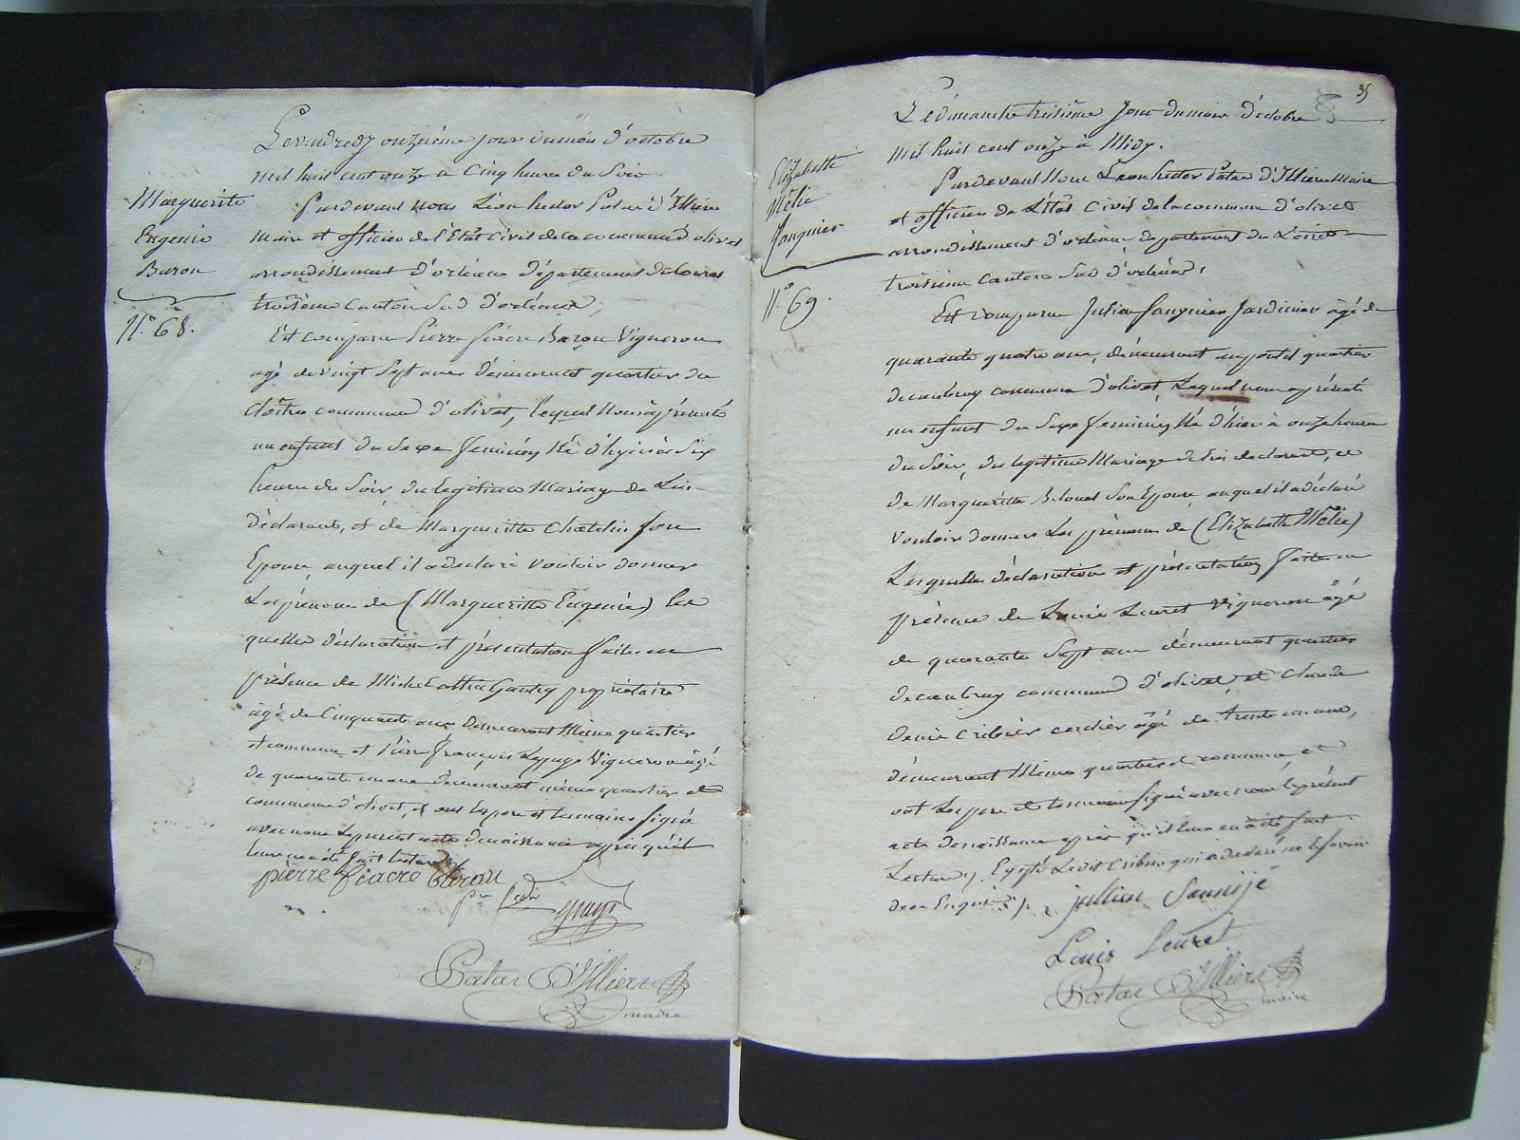 Le vendredy onzieme jour du mois d'octobre
mil huit cent onze à Cinq heures du Soir
Marguerite
Eugenie
Baron
N.° 68.
Pardevant nous Léon hector Patas d'Illiers
Maire et officier de l'Etat Civil de la commune d'olivet
arrondissement d'orleans département du Loiret
troisieme Canton Sud d'orleans,
Est comparu Pierre fiacre Baron Vigneron
agé de vingt Sept ans demeurant quartier du
cloitre commune d'olivet, lequel Nous a présenté
un enfant du Sexe feminin Né d'hyer à Six
heures du Soir du legitime Mariage de Lui
déclarant, et de Margueritte Chatelin Son
Epouse auquel il a declaré vouloir donner
Les prénoms de (Margueritte Eugenie) Les
quelles déclaration et présentation faites en
présence de Michel Gautry propriétaire
agé de Cinquante ans demeurant Même quartier
et commune et Pierre François Lepage Vigneron agé
de quarante un ans demeurant même quartier et
commune d'olivet, et ont Les pere et temoins Signé
avec nous Le present acte de naissance après qu'il
leur en a été fait lecture
pierre fiacre Baron
Patas D'Illiers
maire
35
Le dimanche treisieme Jour du mois d'octobre
Mil huit cent onze à Midy.
Elizabeth
Mélie
Saugnier
N.° 69.
Pardevant Nous Léon hector Patas d'Illiers Maire
et officier de L'Etat Civil de la commune d'olivet
arrondissement d'orleans, departement du Loiret
troisieme canton Sud d'orleans,
Est comparu Julien Saugnier Jardinier agé de
quarante quatre ans, demeurant quartier
de coubray commune d'olivet, Lequel nous a présenté
un enfant du Sexe feminin Né d'hier à onze heures
du Soir, du legitime Mariage de Lui déclarant, et
de Margueritte Belouet Son Epouse auquel il a déclaré
Vouloir donner Les prénoms de (Elizabethe Mélie)
Lesquelles déclaration et présentation faites en
présence de Louis Leuret Vigneron agé
de quarante Sept ans demeurant quartier
de coubray commune d'olivet, et Claude
Denis Cribier cordier agé de trente un ans,
demeurant Même quartier et commune, et
ont Les pere et temoins Signé avec nous le présent
acte de naissance après qu'il leur en a été fait
Lecture, Excepté Ledit Cribier qui a declaré ne le Savoir
de ce Enquis
jullien Saunije
Louis Leuret
Patas D'Illiers
maire